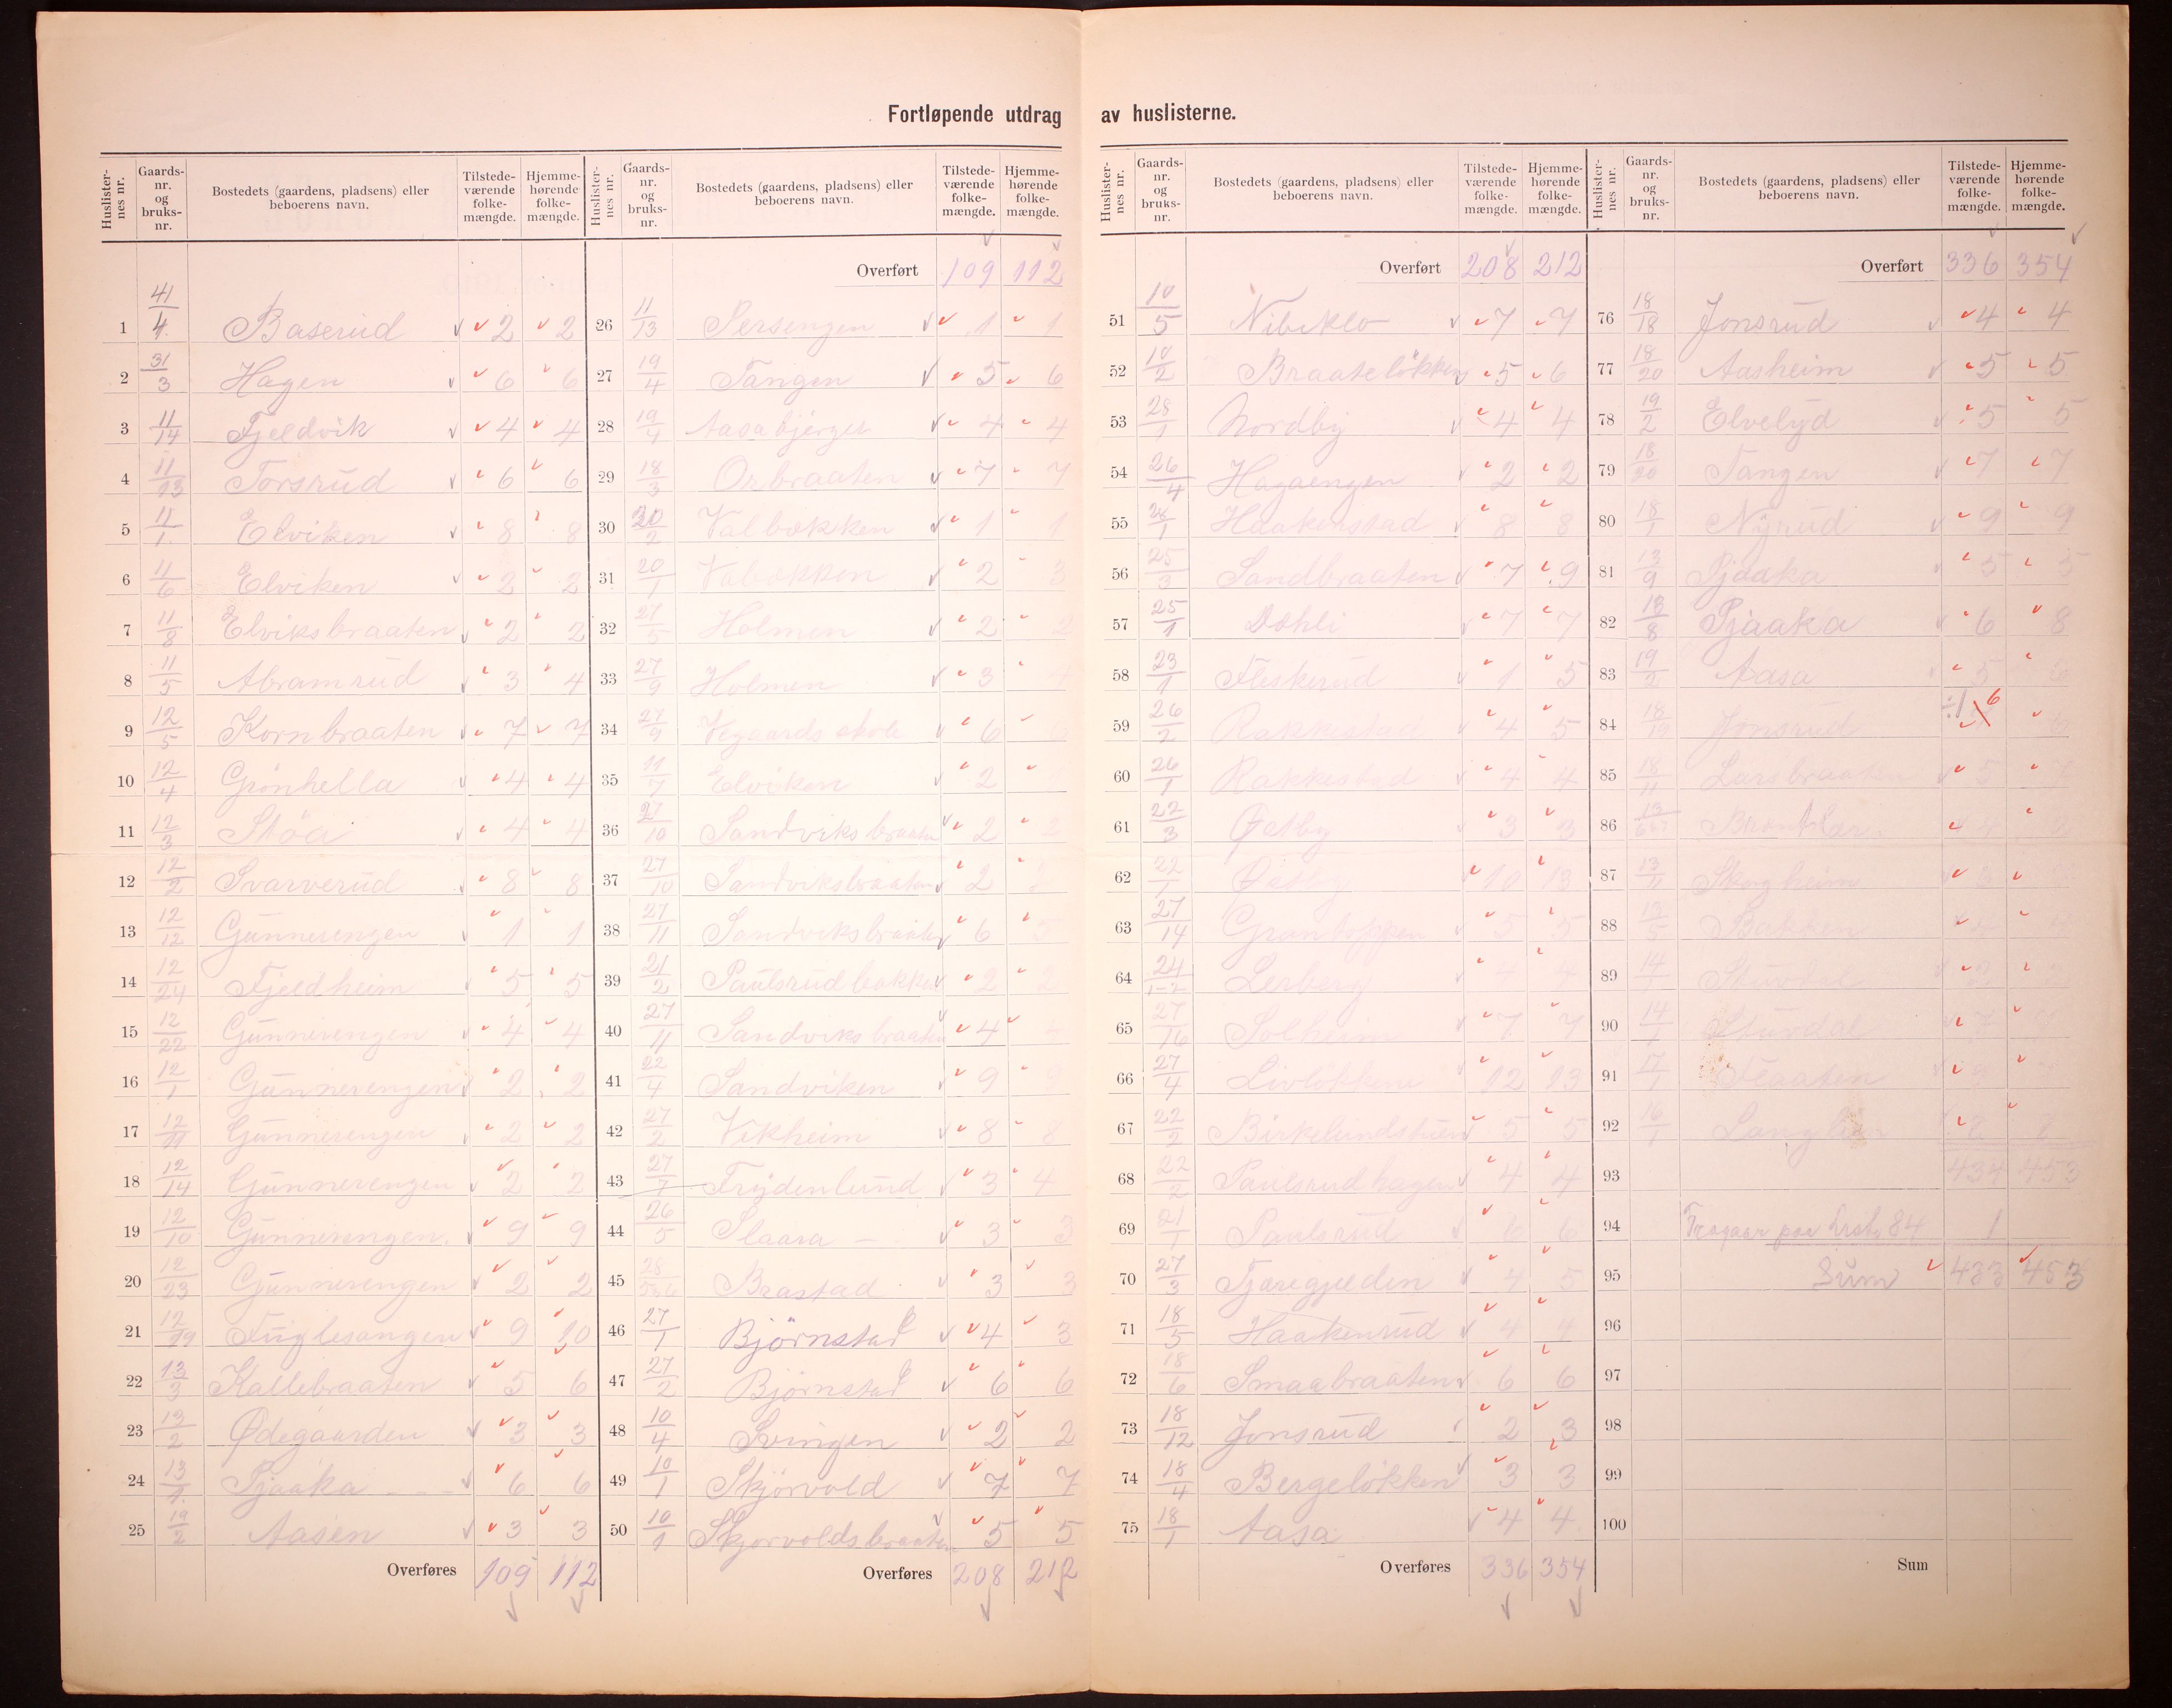 Fortløpende utdrag av huslisterne.
Huslister-nes nr. Gaards-nr. og bruks-nr. Bostedets (gaardens, pladsens) eller beboerens navn. Tilstede-værende folke-mængde. Hjemme-hørende folke-mængde.
1 41/4 Baserud 2 2
2 31/3 Hagen 6 6
3 11/14 Fjeldvik 4 4
4 11/13 Torsrud 6 6
5 11/1 Elviken 8 8
6 11/6 Elviken 2 2
7 11/8 Elviksbraaten 2 2
8 11/5 Abramrud 3 4
9 12/5 Kornbraaten 7 7
10 12/4 Grönhella 4 4
11 12/3 Stöa 4 4
12 12/2 Svarverud 8 8
13 12/12 Gunnerengen 1 1
14 12/24 Fjeldheim 5 5
15 12/22 Gunnerengen 4 4
16 12/1 Gunnerengen 2 2
17 12/11 Gunnerengen 2 2
18 12/14 Gunnerengen 2 2
19 12/10 Gunnerengen 9 9
20 12/23 Gunnerengen 2 2
21 12/19 Fuglesangen 9 10
22 13/3 Kallebraaten 5 6
23 13/2 Ødegaarden 3 3
24 13/1 Pjaaka 6 6
25 19/2 Aasen 3 3
Overføres 109 112
Huslister-nes nr. Gaards-nr. og bruks-nr. Bostedets (gaardens, pladsens) eller beboerens navn. Tilstede-værende folke-mængde. Hjemme-hørende folke-mængde.
Overført 109 112
26 11/13 Persengen 1 1
27 19/4 Tangen 5 6
28 19/4 Aasabjerget 4 4
29 18/3 Osbraaten 7 7
30 20/2 Valbækken 1 1
31 20/1 Valbækken 2 3
32 27/5 Holmen 2 2
33 27/9 Holmen 3 4
34 27/9 Vegaards skole 6
35 11/7 Elviken 2
36 27/10 Sandviksbraaten 2 2
37 27/10 Sandviksbraaten 2
38 27/11 Sandviksbraaten 6 5
39 21/2 Paulsrudbakken 2 2
40 27/11 Sandviksbraaten 4
41 22/4 Sandviken 9
42 27/2 Vikheim 8 8
43 27/7 Frydenlund 3 4
44 26/5 Slaara 3 3
45 Brastad 3 3
46 27/1 Björnstad 4 3
47 27/2 Björnstad 6 6
48 10/4 Svingen 2 2
49 10/1 Skjörvold 7 7
50 10/1 Skjorvoldsbraaten 5 5
Overføres 208 212
Huslister-nes nr. Gaards-nr. og bruks-nr. Bostedets (gaardens, pladsens) eller beboerens navn. Tilstede-værende folke-mængde. Hjemme-hørende folke-mængde.
Overført 208 212
51 10/5 Nibeklo 7 7
52 10/2 Braatelökken 5 6
53 28/1 Nordby 4 4
54 26/4 Hagaengen 2 2
55 Haakenstad 8 8
56 25/3 Sandbraaten 7 9
57 25/1 Dæhli 7 7
58 23/1 Fleskerud 1 5
59 26/2 Rakkestad 4 5
60 26/1 Rakkestad 4 4
61 22/3 Østby 3 3
62 22/1 Østby 10 13
63 27/14 Grantoppen 5 5
64 24/1-2 Lerberg 4 4
65 27/16 Solheim 7 7
66 27/4 12 13
67 22/2 5 5
68 22/2 Paulsrudhagen 4 4
69 21/1 Paulsrud 6 6
70 27/3 Tjæregjelden 4 5
71 18/5 Haakenrud 4 4
72 18/6 Smaabraaten 6 6
73 18/12 Jonsrud 2 3
74 18/4 Bergelökken 3 3
75 18/1 Aasa 4 4
Overføres 336 354
Huslister-nes nr. Gaards-nr. og bruks-nr. Bostedets (gaardens, pladsens) eller beboerens navn. Tilstede-værende folke-mængde. Hjemme-hørende folke-mængde.
Overført 336 354
76 18/18 Jonsrud 4 4
77 18/20 Aasheim 5 5
78 19/2 Elvelyd 5 5
79 18/20 Tangen 7 7
80 18/1 Nyrud 9 9
81 13/9 Pjaaka 5 5
82 13/8 Pjaaka 6 8
83 19/2 Aasa 5 6
84 18/19 Jonsrud 6
85 18/11 5
86
87 13/11 Skogheim
88 13/5 Bakken
89 14/1
90 14/1
91 17/1
92 16/1
93 434 453
94 84 1
95 Sum 433 453
96
97
98
99
100
Sum